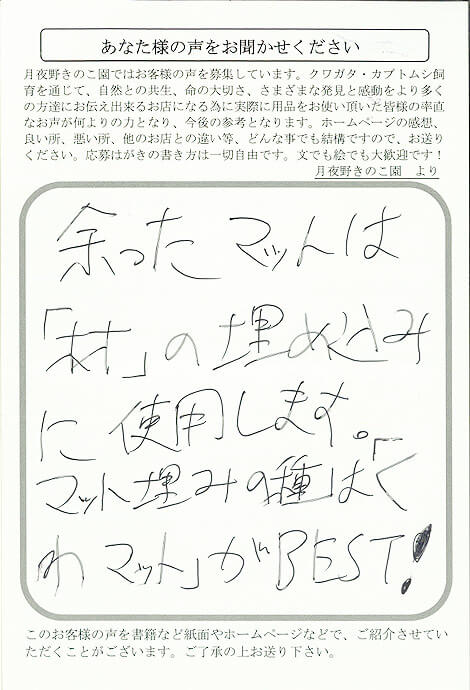 あなた様の声をお聞かせください
月夜野きのこ園ではお客様の声を募集しています。クワガタ・カブトムシ飼
育を通じて、自然との共生、命の大切さ、さまざまな発見と感動をより多く
の方達にお伝え出来るお店になる為に実際に用品をお使い頂いた皆様の率直
なお声が何よりの力となり、今後の参考となります。ホームページの感想、
良い所、悪い所、他のお店との違い等、どんな事でも結構ですので、お送り
ください。応募はがきの書き方は一切自由です。文でも絵でも大歓迎です！
月夜野きのこ園　より
余ったマットは
「材」の埋め込み
に使用します。
マット埋みの種は「く
わマット」がBEST!
このお客様の声を書籍など紙面やホームページなどで、ご紹介させてい
ただくことがございます。ご了承の上お送り下さい。